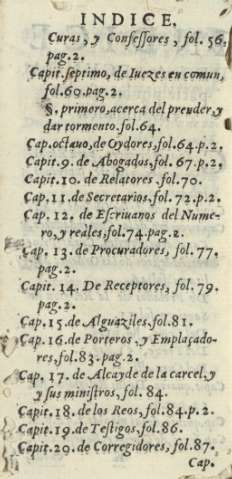 INDICE.
Curas, y Confessores, fol. 56.
pag.2.
Capit. septimo, de Iuezes en comun,
fol.60.pag.2.
§. primero, acerca del prender, y
dar tormento.fol.64.
Cap.octauo, de Oydores, fol.64.p.2.
Capit.9. de Abogados, fol.67.p.2.
Capit.10. de Relatores, fol.70.
Cap.11. de Secretarios, fol.72.p.2.
Cap. 12. de Escriuanos del Nume-
ro, y reales, fol.74.pag.2.
Cap. 13. de Procuradores, fol. 77.
pag.2.
Capit. 14. De Receptores, fol. 79.
pag.2.
Cap.15. de Alguaziles, fol.81.
Cap.16. de Porteros, y Emplaçado-
res, fol.83.pag.2.
Cap. 17. de Alcayde de la carcel, y
y sus ministros, fol. 84.
Capit.18. de los Reos, fol.84.p.2.
Capit.19. de Testigos, fol.86.
Capit.20. de Corregidores, fol.87.
Cap.